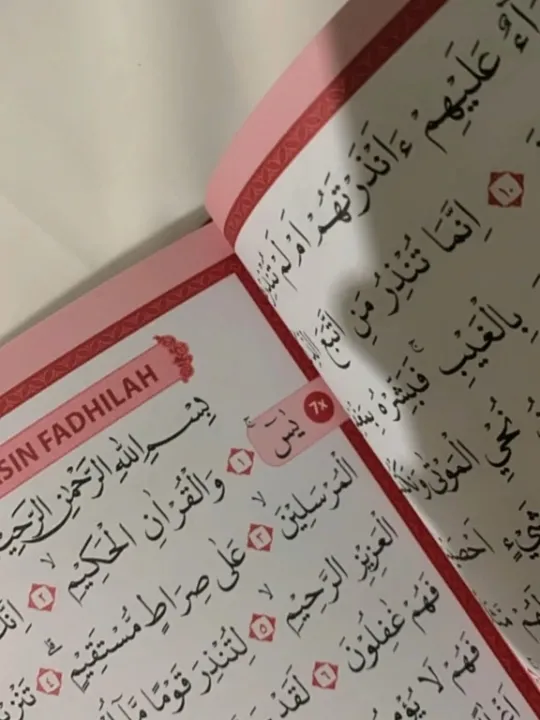 SIN FADHILAH
بِسْمِ اللّٰهِ الرَّحْمٰنِ الرَّحِيْمِ
7x
يٰسۤ ۝١ وَالْقُرْاٰنِ الْحَكِيْمِ ۝٢
الْمُرْسَلِيْنَ ۝٣ عَلٰى صِرَاطٍ مُّسْتَقِيْمٍ ۝٤
الْعَزِيْزِ الرَّحِيْمِ ۝٥ لِتُنْذِرَ قَوْمًا
فَهُمْ غٰفِلُوْنَ ۝٦ لَقَدْ
فَهُمْ لَا
عَلَيْهِمْ ءَاَنْذَرْتَهُمْ اَمْ لَمْ
۝١٠ اِنَّمَا تُنْذِرُ مَنِ اتَّبَعَ
بِالْغَيْبِ فَبَشِّرْهُ
نُحْيِ الْمَوْتٰى